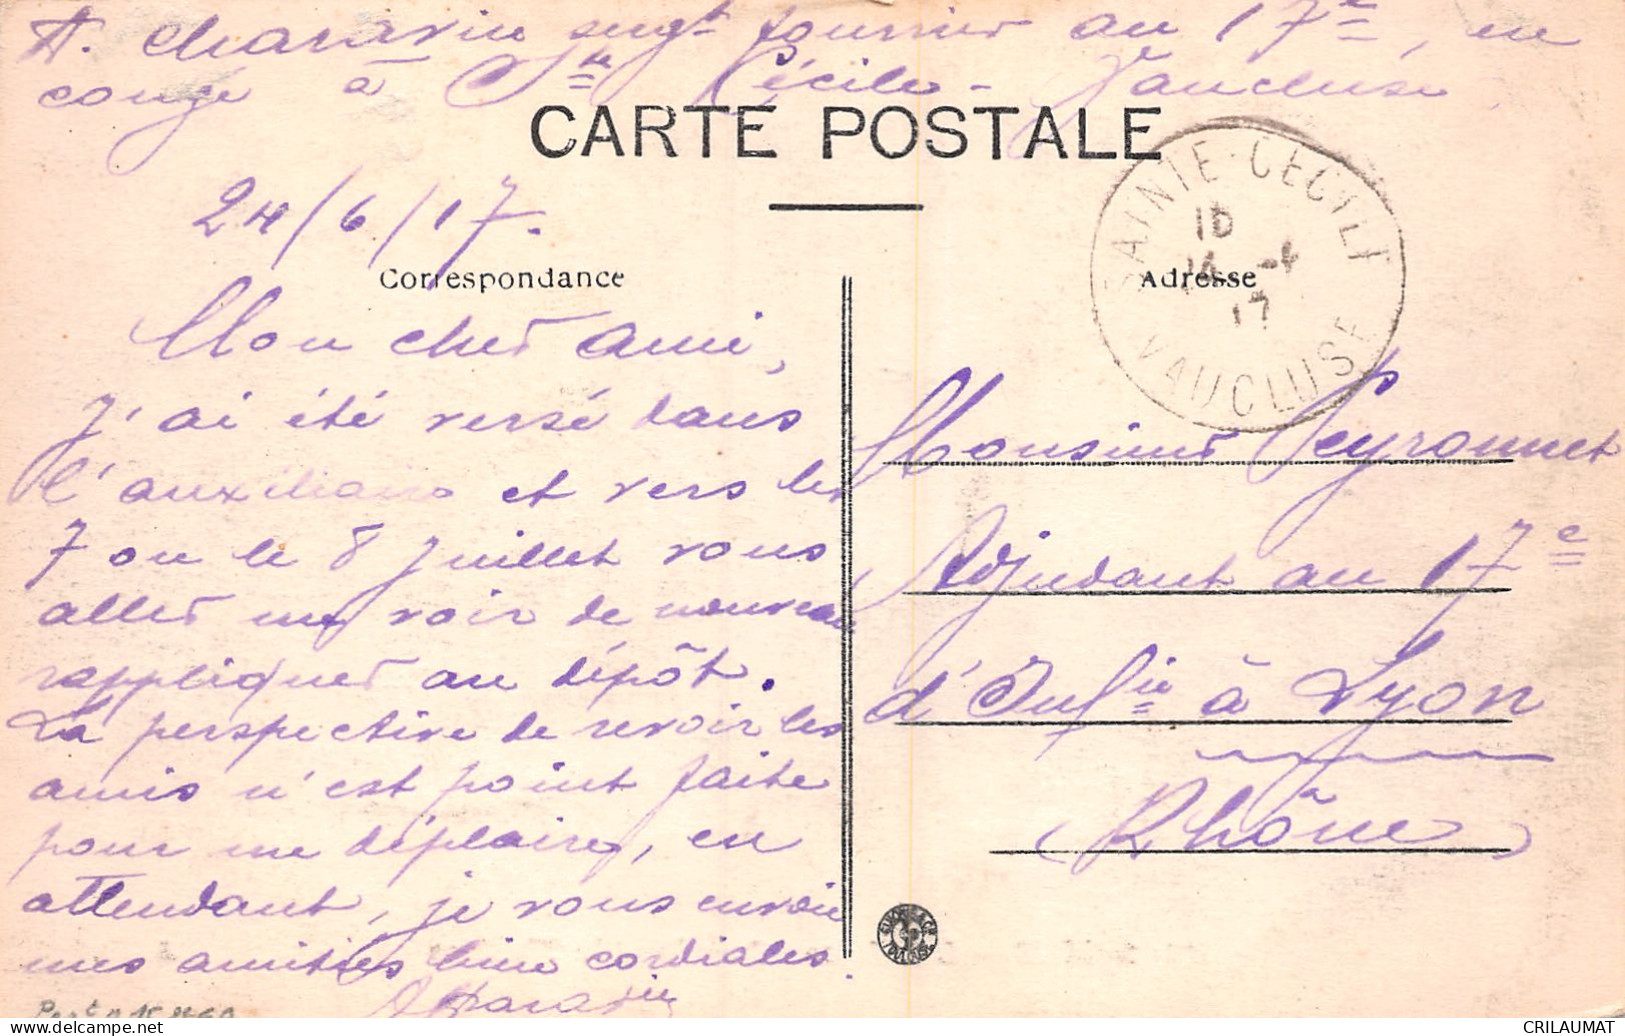 A. Charavin sergt fourrier au 17e, en
congé à Ste Cécile - Vaucluse.
CARTE POSTALE
SAINTE-CECILE
VAUCLUSE
17
24/6/17.
Correspondance
Mon cher ami,
J'ai été versé dans
l'auxiliaire et vers le
7 ou le 8 Juillet vous
allez me voir de nouveau
rappliquer au dépôt.
La perspective de revoir les
amis n'est point faite
pour me déplaire, en
attendant, je vous envoie
mes amitiés bien cordiales.
Charavin
Adresse
Monsieur Peyronnet
Adjudant au 17e
d'Infie à Lyon
(Rhône)
CRILAUMAT